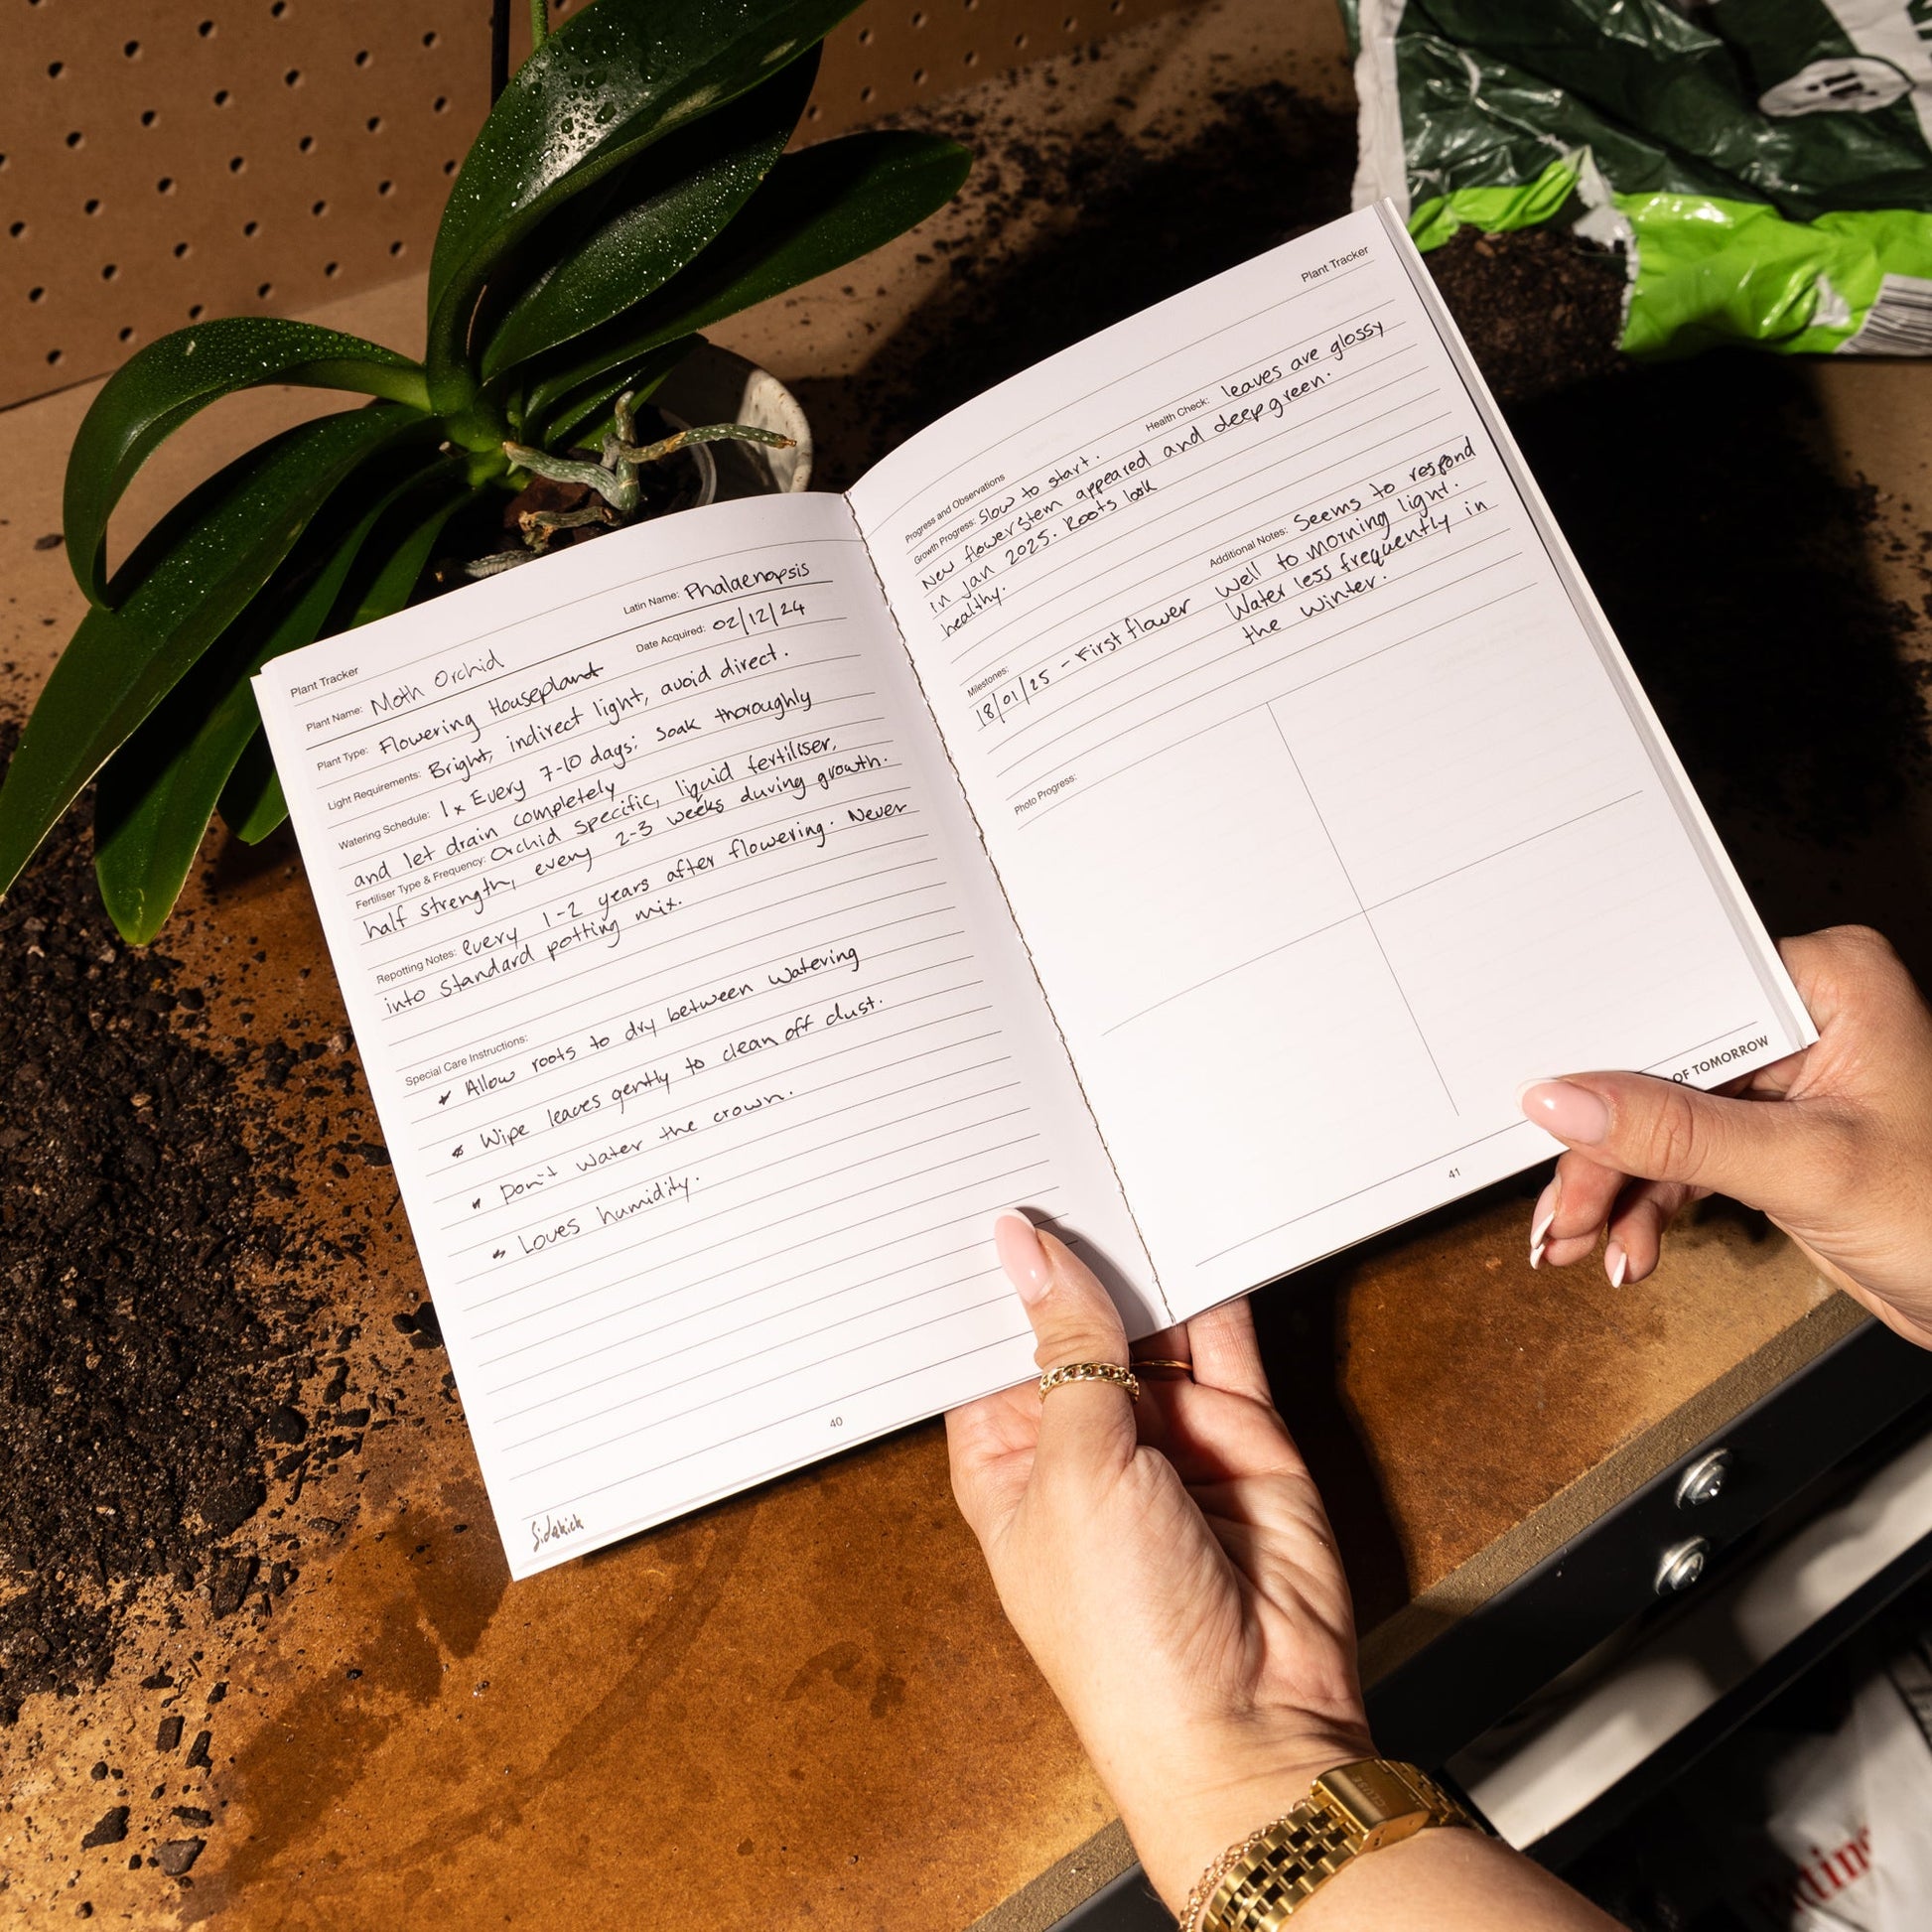 Plant Tracker
Plant Name: Moth Orchid Latin Name: Phalaenopsis
Plant Type: Flowering Houseplant Date Acquired: 02/12/24
Light Requirements: Bright, indirect light, avoid direct.
Watering Schedule: 1x Every 7-10 days: Soak thoroughly
and let drain completely
Fertiliser Type & Frequency: Orchid specific, liquid fertiliser,
half strength, every 2-3 weeks during growth.
Repotting Notes: every 1-2 years after flowering. Never
into standard potting mix.
Special Care Instructions:
* Allow roots to dry between watering
* Wipe leaves gently to clean off dust.
* Don't water the crown.
* Loves humidity.
40
Sidekick
Plant Tracker
Progress and Observations
Growth Progress: Slow to start.
New flower stem appeared
in Jan 2025. Roots look
healthy.
Health Check: leaves are glossy
and deep green.
Milestones:
18/01/25 - First flower
Additional Notes: Seems to respond
well to morning light.
Water less frequently in
the winter.
Photo Progress:
OF TOMORROW
41